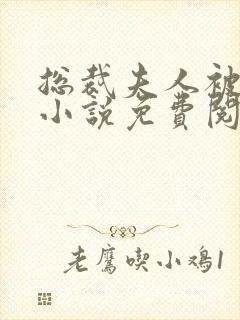 总裁夫人被
小说免费阅
老鹰喫小鸡1